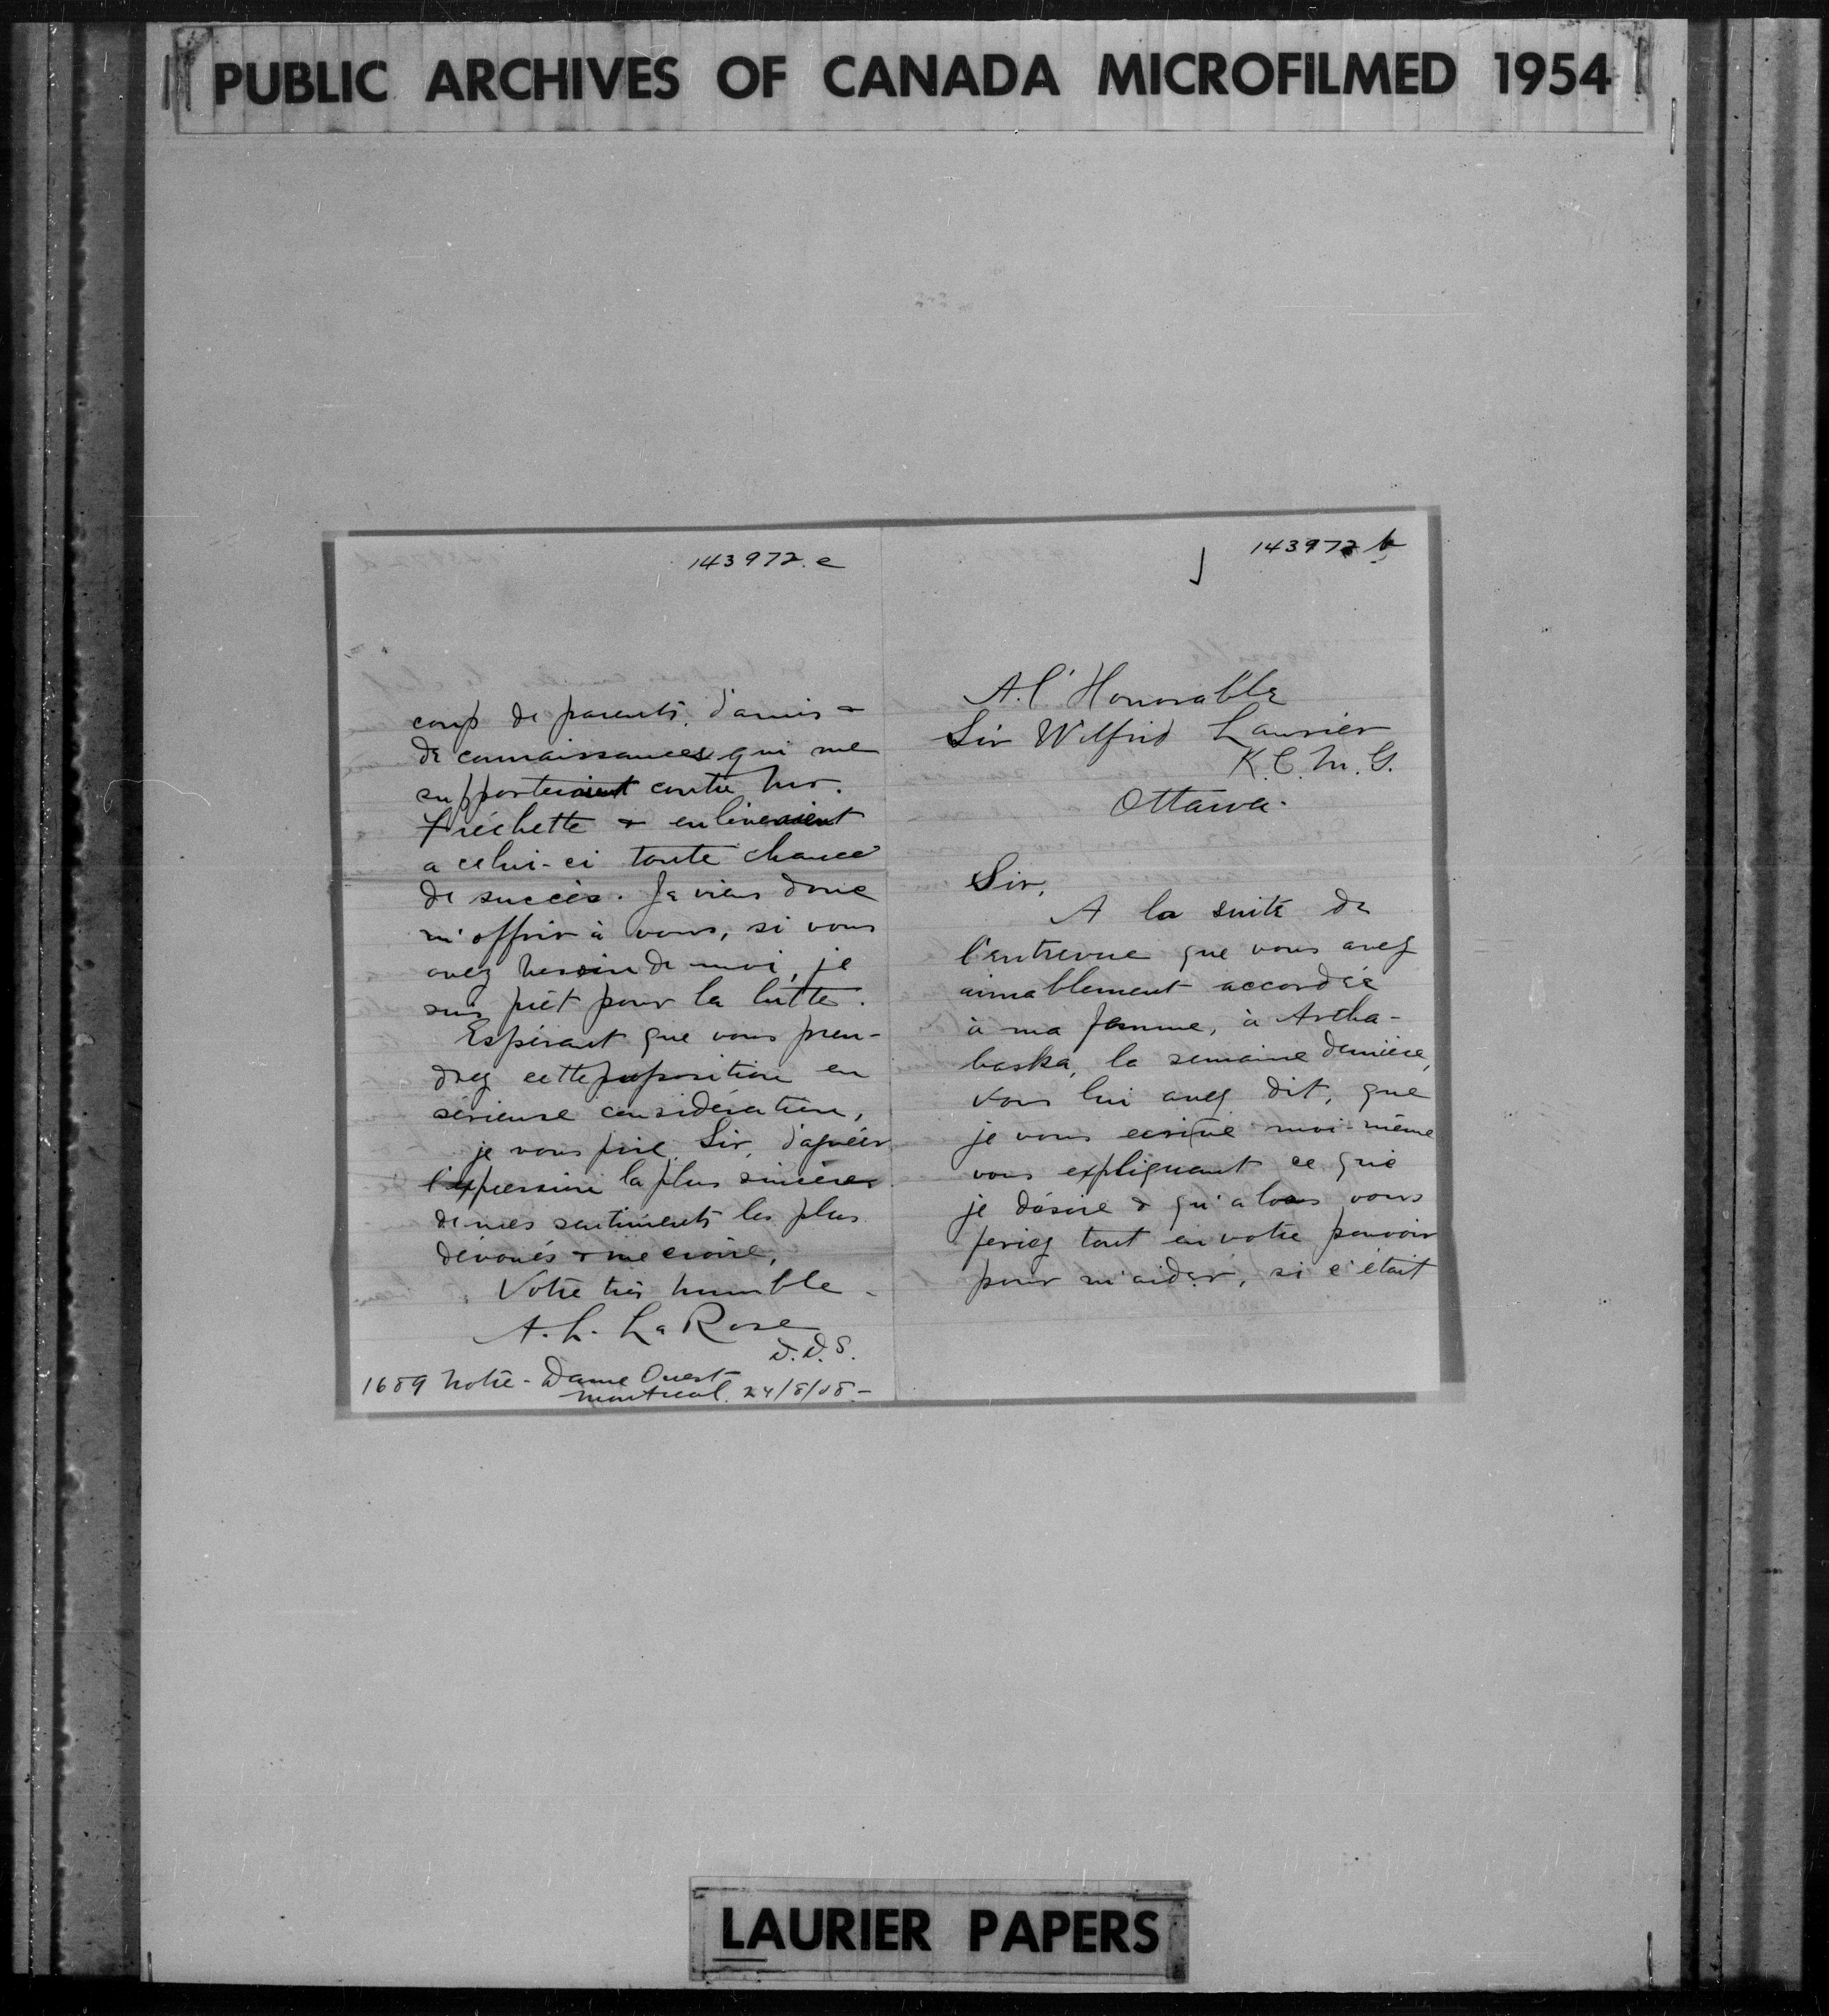 PUBLIC ARCHIVES OF CANADA MICROFILMED 1954
143972.e
coup de parents, d'amis &
de connaissances qui me
supporteraient contre Mr.
Fréchette & enlèveraient
a celui-ci toute chance
de succès. Je viens donc
m'offrir à vous, si vous
avez besoin de moi, je
suis prêt pour la lutte.
Espérant que vous pren-
drez cette proposition en
sérieuse considération,
je vous prie, Sir, d'agréer
l'expression la plus sincère
de mes sentiments les plus
dévoués & me croire,
Votre très humble
A. L. LaRose
D.D.S.
1689 Notre-Dame Ouest
Montreal. 24/8/08-
143972 b
A. l'Honorable
Sir Wilfrid Laurier
K.C.M.G.
Ottawa.
Sir,
A la suite de
l'entrevue que vous avez
aimablement accordée
à ma femme, à Artha-
baska, la semaine dernière,
vous lui avez dit, que
je vous écrive moi-même
vous expliquant ce que
je désire & qu'alors vous
feriez tout en votre pouvoir
pour m'aider, si c'était
LAURIER PAPERS